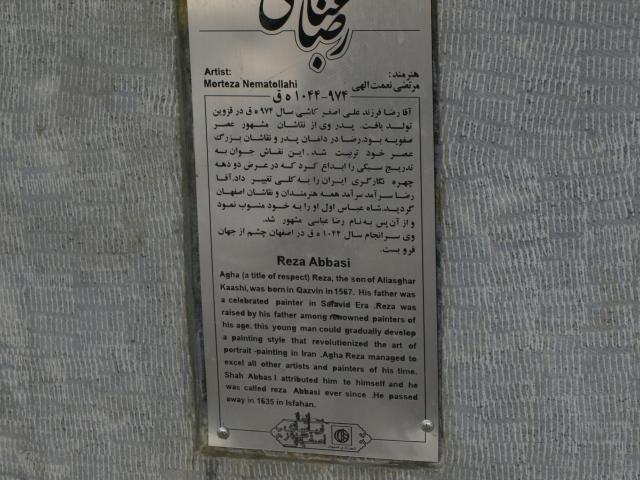 رضا عباسی
Artist:
Morteza Nematollahi
هنرمند:
مرتضی نعمت الهی
۹۷۴-۱۰۴۴ ه ق
آقا رضا فرزند علی اصغر کاشی سال ۹۷۴ ه ق در قزوین
تولد یافت. پدر وی از نقاشان مشهور عصر
صفویه بود.رضا در دامان پدر و نقاشان بزرگ
عصر خود تربیت شد.این نقاش جوان به
تدریج سبکی را ابداع کرد که در عرض دو دهه
چهره نگارگری ایران را به کلی تغییر داد.آقا
رضا سرآمد سرآمد همه هنرمندان و نقاشان اصفهان
گردید.شاه عباس اول او را به خود منسوب نمود
و از آن پس به نام رضا عباسی مشهور شد.
وی سرانجام سال ۱۰۴۴ ه ق در اصفهان چشم از جهان
فرو بست.
Reza Abbasi
Agha (a title of respect) Reza, the son of Aliasghar
Kaashi, was born in Qazvin in 1567. His father was
a celebrated painter in Safavid Era .Reza was
raised by his father among renowned painters of
his age. this young man could gradually develop
a painting style that revolutionized the art of
portrait -painting in Iran .Agha Reza managed to
excel all other artists and painters of his time.
Shah Abbas I attributed him to himself and he
was called reza Abbasi ever since .He passed
away in 1635 in Isfahan.